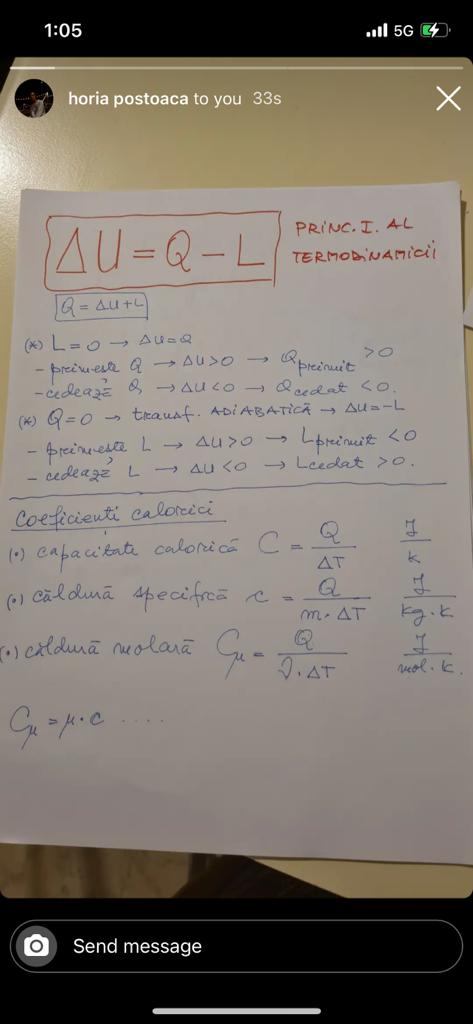 1:05 5G
horia postoaca to you 33s
ΔU = Q - L
PRINC. I. AL
TERMODINAMICII
Q = ΔU+L
(*) L=0 → ΔU=Q
- primește Q → ΔU>0 → Qprimit >0
- cedează Q → ΔU<0 → Qcedat <0.
(*) Q=0 → transf. ADIABATICĂ → ΔU=-L
- primește L → ΔU>0 → Lprimit <0
- cedează L → ΔU<0 → Lcedat >0.
Coeficienți calorici
(•) capacitate calorică C = Q/ΔT J/K
(•) căldură specifică c = Q/m·ΔT J/kg·K
(•) căldură molară Cμ = Q/ν·ΔT J/mol·K.
Cμ = μ·c ....
Send message